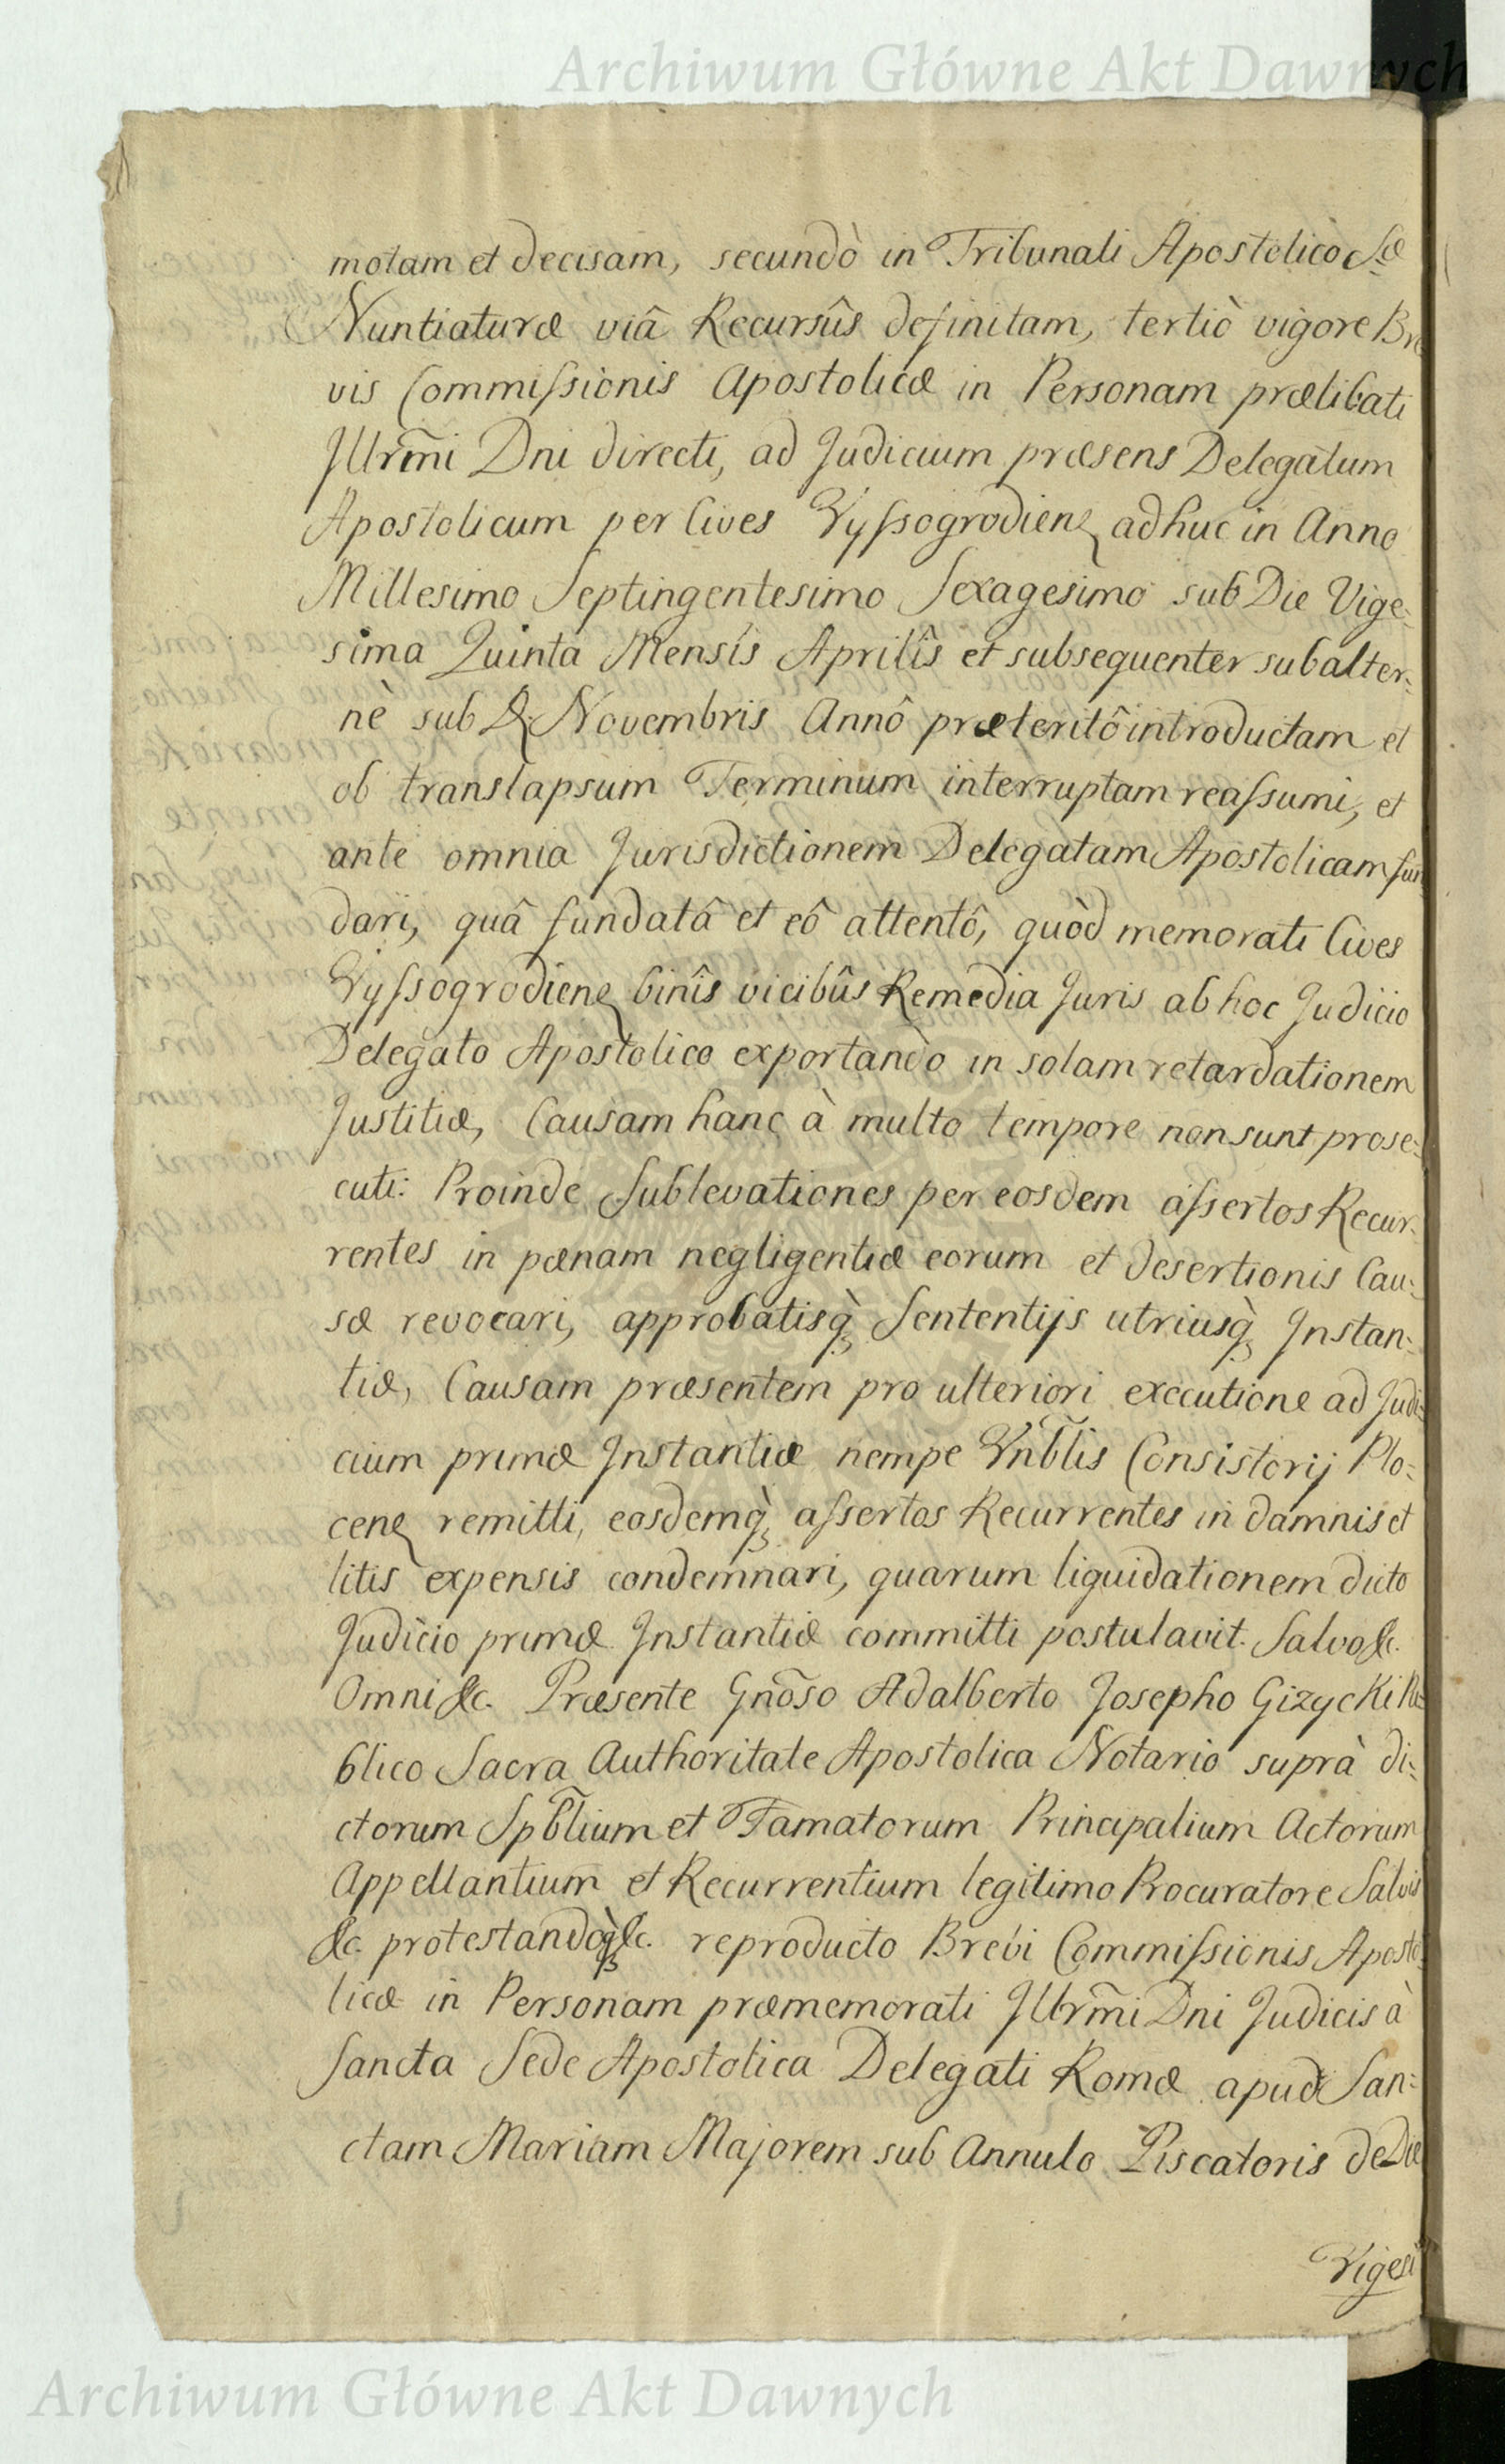 Archiwum Główne Akt Dawnych
motam et decisam, secundò in Tribunali Apostolico Sæ
Nuntiaturæ viâ Recursûs definitam, tertiò vigore Bre
vis Commissionis Apostolicæ in Personam prælibati
Illrm̃i Dni directi, ad Judicium præsens Delegatum
Apostolicum per Cives Vyssogrodien adhuc in Anno
Millesimo Septingentesimo Sexagesimo sub Die Vige:
sima Quinta Mensis Aprilîs et subsequenter subalter:
nè sub Novembris Annô præteritô introductam et
ob translapsum Terminum interruptam reassumi, et
ante omnia Jurisdictionem Delegatam Apostolicam fun
dari, quâ fundatâ et eô attentô, quòd memorati Cives
Vyssogrodien binîs vicibûs Remedia Juris ab hoc Judicio
Delegato Apostolico exportando in solam retardationem
Justitiæ, Causam hanc à multo tempore non sunt prose:
cuti: Proinde Sublevationes per eosdem assertos Recur:
rentes in pænam negligentiæ eorum et desertionis Cau:
sæ revocari, approbatisq̀ Sententijs utriusq̀ Instan:
tiæ, Causam præsentem pro ulteriori executione ad Judi:
cium primæ Instantiæ nempe Vñblis Consistorij Plo:
cen remitti, eosdemq̀ assertos Recurrentes in damnis et
litis expensis condemnari, quarum liquidationem dicto
Judicio primæ Instantiæ committi postulavit. Salvo &c.
Omni &c. Præsente Gnõso Adalberto Josepho Gizycki Pu:
blico Sacra Authoritate Apostolica Notario suprà di:
ctorum Spb̃lium et Famatorum Principalium Actorum
Appellantium et Recurrentium legitimo Procuratore Salvis
&c. protestandoq̀ &c. reproducto Brevi Commissionis Aposto
licæ in Personam præmemorati Illrm̃i Dni Judicis à
Sancta Sede Apostolica Delegati Romæ apud San:
ctam Mariam Majorem sub Annulo Piscatoris de Die
Vigesi
Archiwum Główne Akt Dawnych